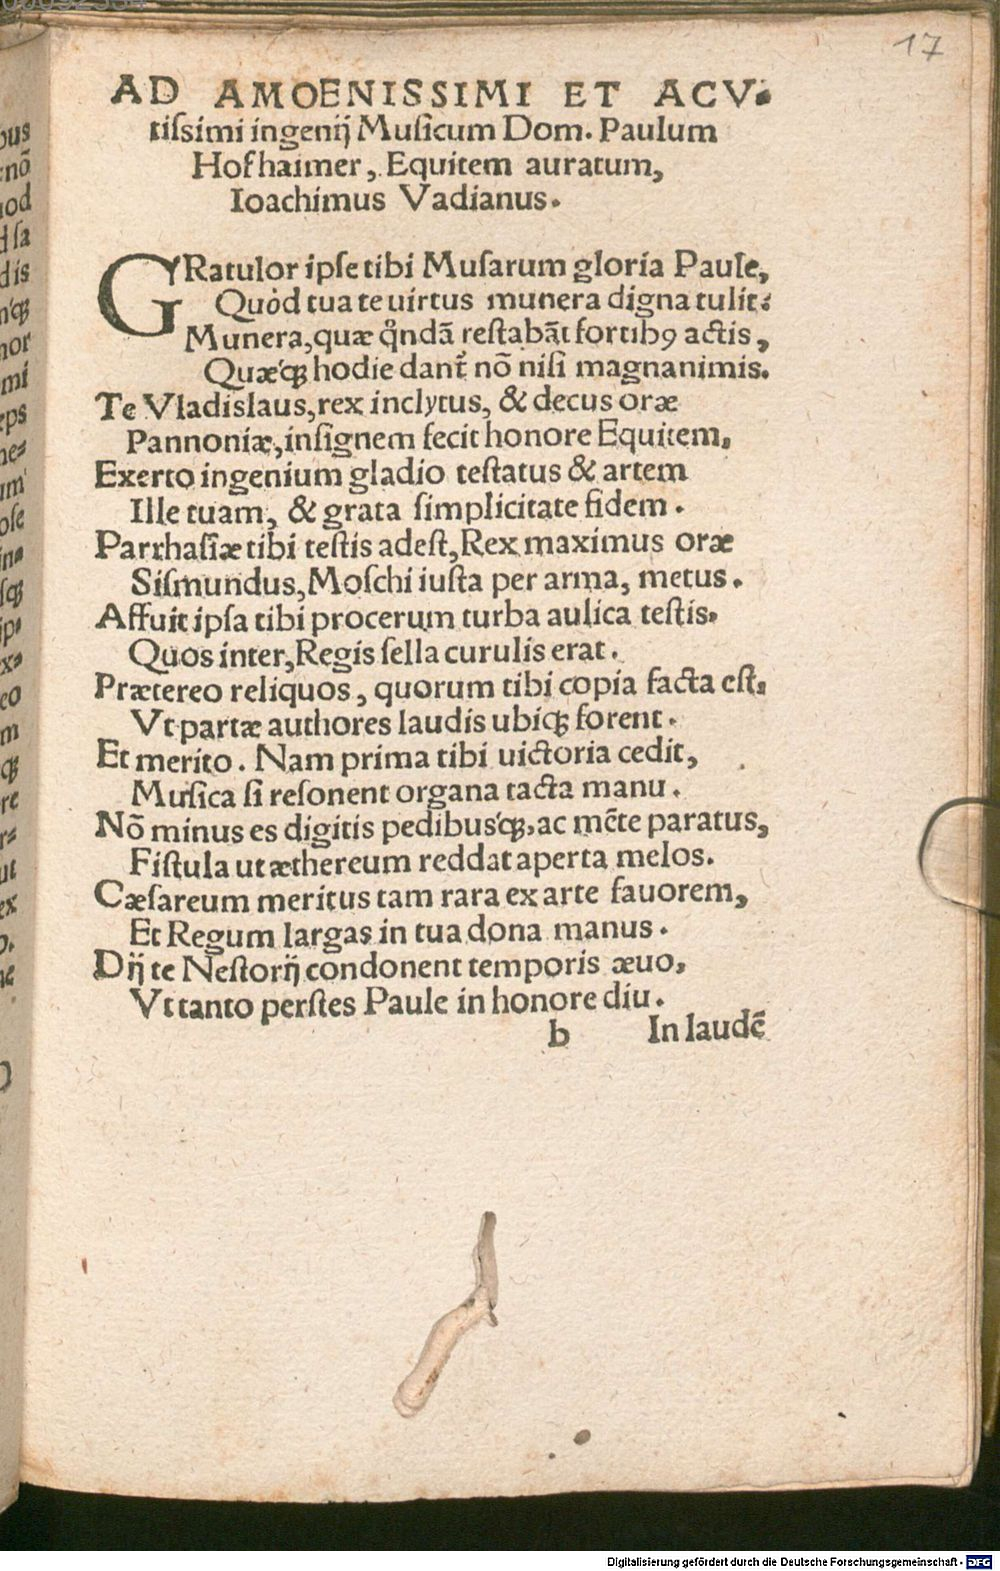 17
AD AMOENISSIMI ET ACV-
tissimi ingenij Musicum Dom. Paulum
Hofhaimer, Equitem auratum,
Ioachimus Vadianus.
GRatulor ipse tibi Musarum gloria Paule,
Quòd tua te uirtus munera digna tulit:
Munera, quæ q̊ndā restabāt fortibꝰ actis,
Quæq́ꝫ hodie dant᷑ nō nisi magnanimis.
Te Vladislaus, rex inclytus, & decus oræ
Pannoniæ, insignem fecit honore Equitem,
Exerto ingenium gladio testatus & artem
Ille tuam, & grata simplicitate fidem.
Parrhasiæ tibi testis adest, Rex maximus oræ
Sismundus, Moschi iusta per arma, metus.
Affuit ipsa tibi procerum turba aulica testis,
Quos inter, Regis sella curulis erat.
Prætereo reliquos, quorum tibi copia facta est,
Vt partæ authores laudis ubiqꝫ forent.
Et merito. Nam prima tibi uictoria cedit,
Musica si resonent organa tacta manu.
Nō minus es digitis pedibusq́ꝫ, ac mēte paratus,
Fistula ut æthereum reddat aperta melos.
Cæsareum meritus tam rara ex arte fauorem,
Et Regum largas in tua dona manus.
Dij te Nestorij condonent temporis æuo,
Vt tanto perstes Paule in honore diu.
b In laudē
Digitalisierung gefördert durch die Deutsche Forschungsgemeinschaft - DFG